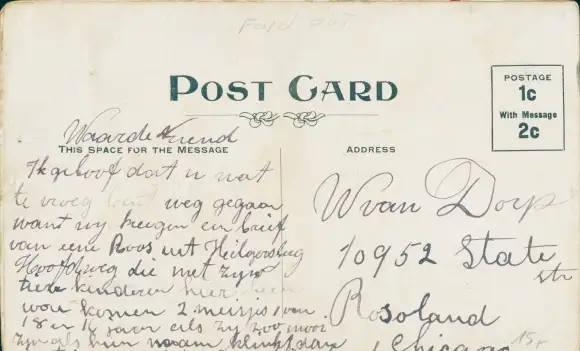 Fold out
POST CARD
POSTAGE
1c
With Message
2c
Waarde Vriend
THIS SPACE FOR THE MESSAGE
ADDRESS
Ik geloof dat u wat
te vroeg bent weg gegaan
want wy kregen een brief
van eene Roos uit
Hoofdweg die met zyn
kinderen hier heen
wou komen 2 meisjes van
18 en 16 jaar als zy zoo mooi
zyn als hun naam klinkt dan
W van Dorp
10952 State
str
Rosoland
Chicago